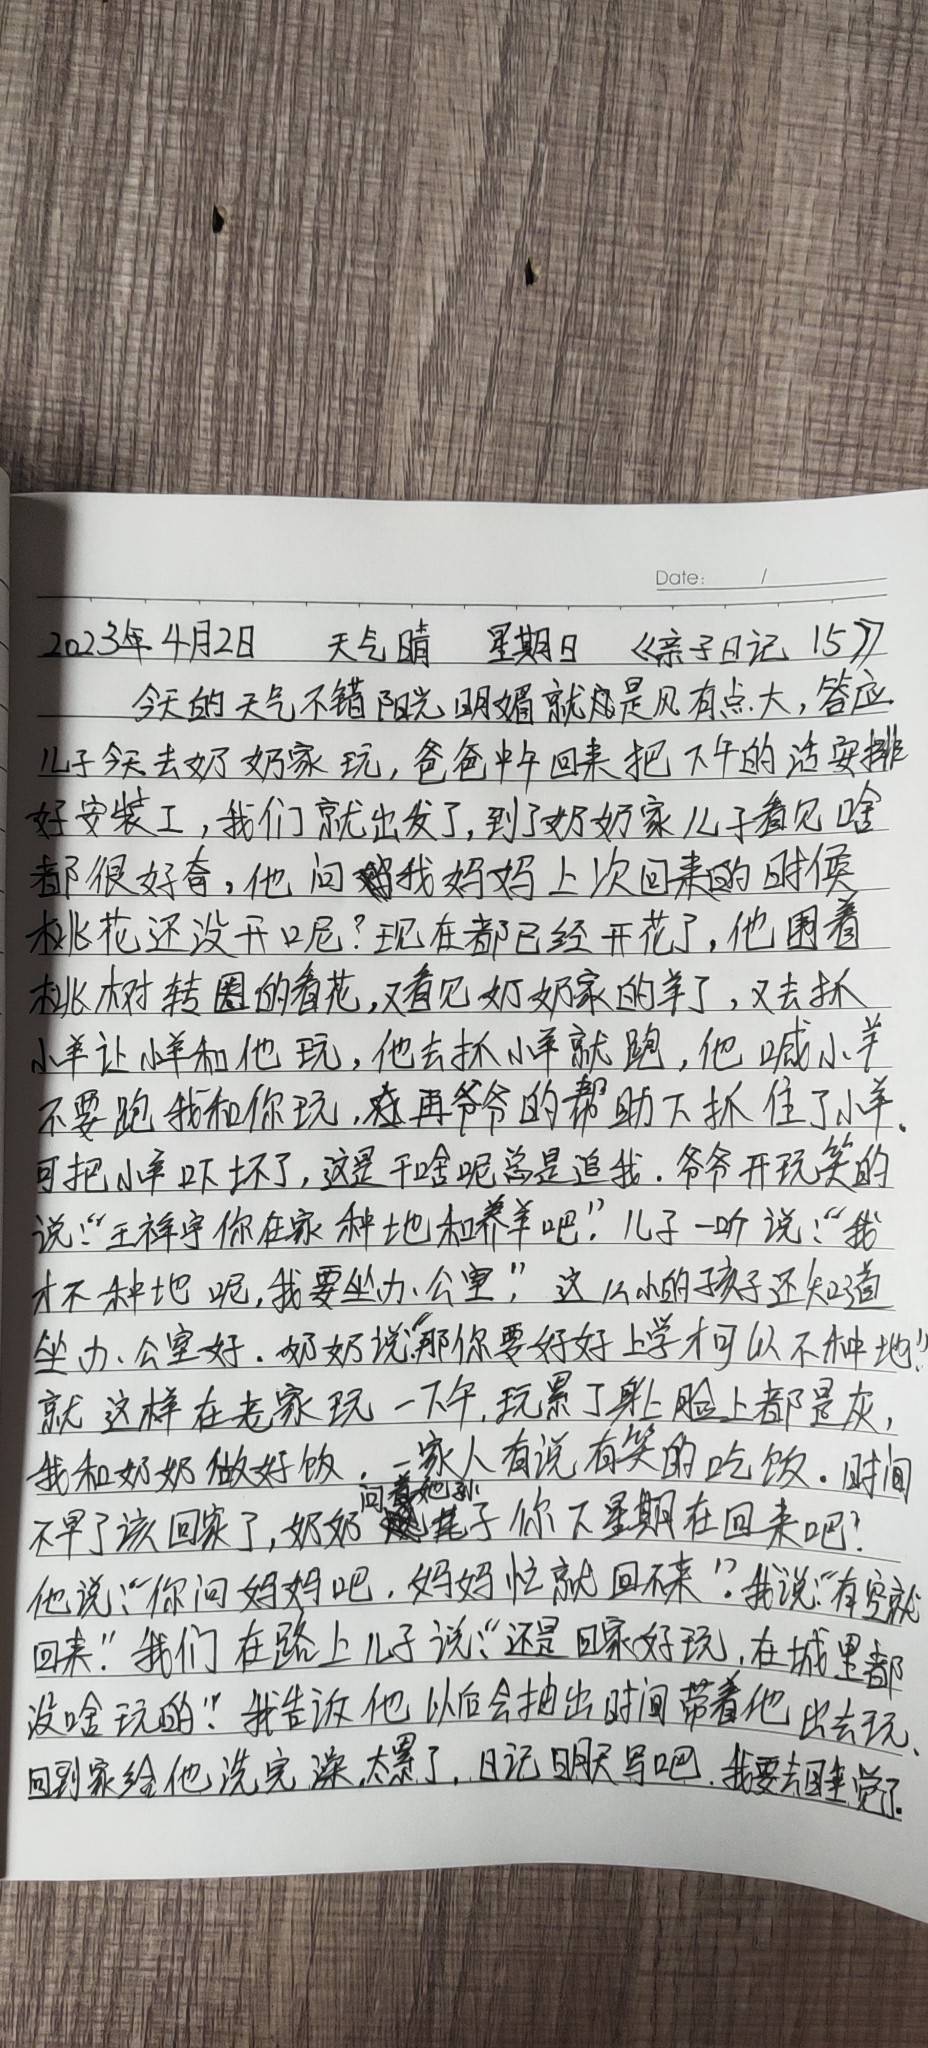 Date: /
2023年4月2日 天气晴 星期日 《亲子日记 15》
今天的天气不错阳光明媚就是风有点大，答应
儿子今天去奶奶家玩，爸爸中午回来把下午的活安排
好安装工，我们就出发了，到了奶奶家儿子看见啥
都很好奇，他问我妈妈上次回来的时候
桃花还没开口呢？现在都已经开花了，他围着
桃树转圈的看花，又看见奶奶家的羊了，又去抓
小羊让小羊和他玩，他去抓小羊就跑，他喊小羊
不要跑我和你玩，再爷爷的帮助下抓住了小羊。
可把小羊吓坏了，这是干啥呢总是追我.爷爷开玩笑的
说：“王祥宇你在家种地和养羊吧！”儿子一听说：“我
才不种地呢，我要坐办公室，”这么小的孩子还知道
坐办公室好.奶奶说“那你要好好上学才可以不种地”
就这样在老家玩一下午，玩累了身上脸上都是灰，
我和奶奶做好饭，一家人有说有笑的吃饭。时间
不早了该回家了，奶奶问着她孙子你下星期在回来吧？
他说：“你问妈妈吧，妈妈忙就回不来”？我说：“有空就
回来”我们在路上儿子说：“还是回家好玩，在城里都
没啥玩的！”我告诉他以后会抽出时间带着他出去玩、
回到家给他洗完澡，太累了，日记明天写吧.我要去睡觉了.